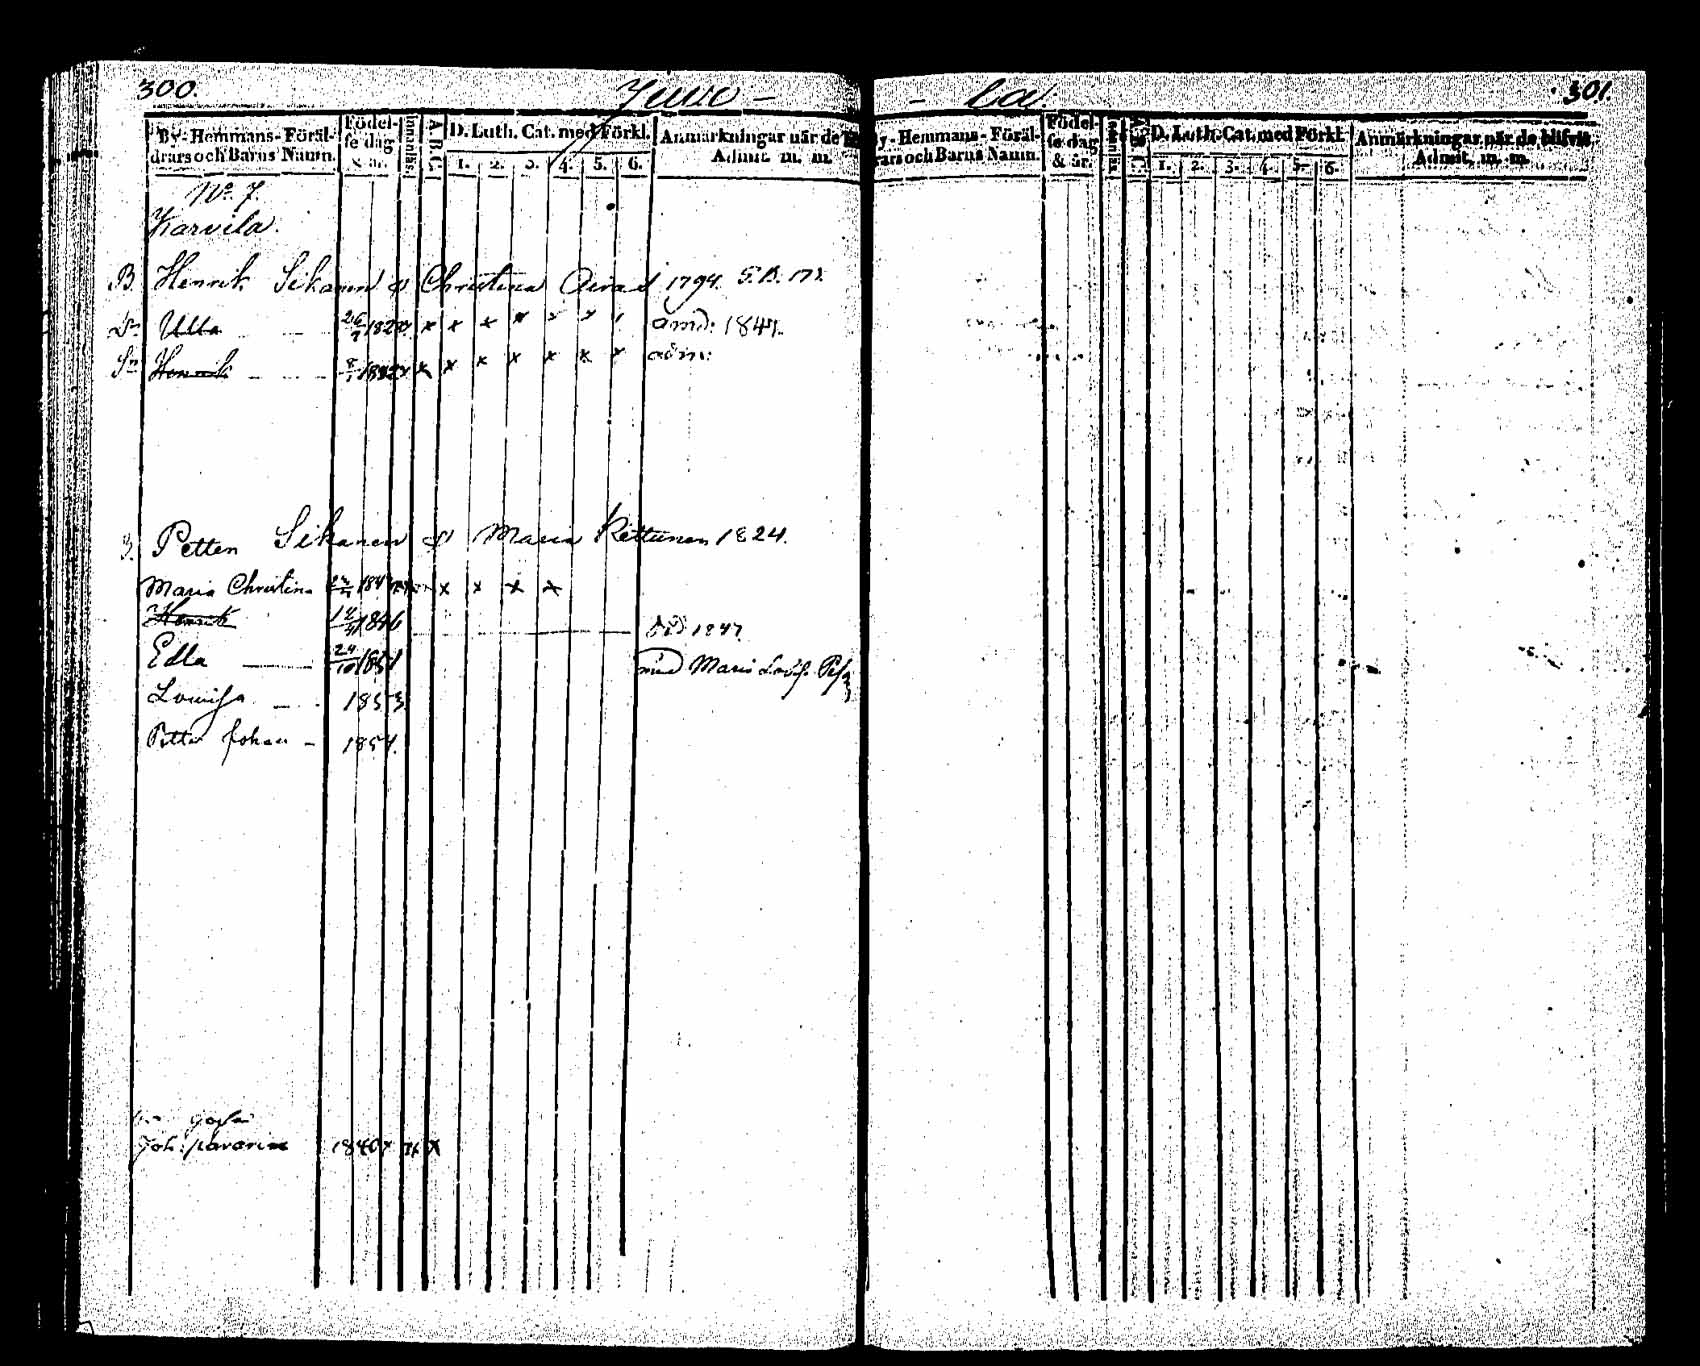 300.
By-Hemmans-Föräl-
drars och Barns Namn.
Födel-
se dag
& år.
Innanläs.
A. B. C.
D. Luth. Cat. med Förkl.
1. 2. 3. 4. 5. 6.
Anmärkningar när de
Admit. m. m.
No 7.
Karvila.
B. Henrik Sikanen & Christina 1794. S.B. 172
Dr Ulla 26/7 182 x x x x x x x admd: 1847.
Sn Henrik x x x x x x x adm:
B. Petter Sikanen & Maria Kettunen 1824.
Maria Christina 184 x x x x
Henrik 1846 död 1847.
Edla 24/10 1851 med Maria
Lovisa 1853
Petter Johan 1857.
Joh: 1840 x x x
301.
By-Hemmans-Föräl-
drars och Barns Namn.
Födel-
se dag
& år.
A. B. C.
D. Luth. Cat. med Förkl.
1. 2. 3. 4. 5. 6.
Anmärkningar när de blifvit
Admit. m. m.